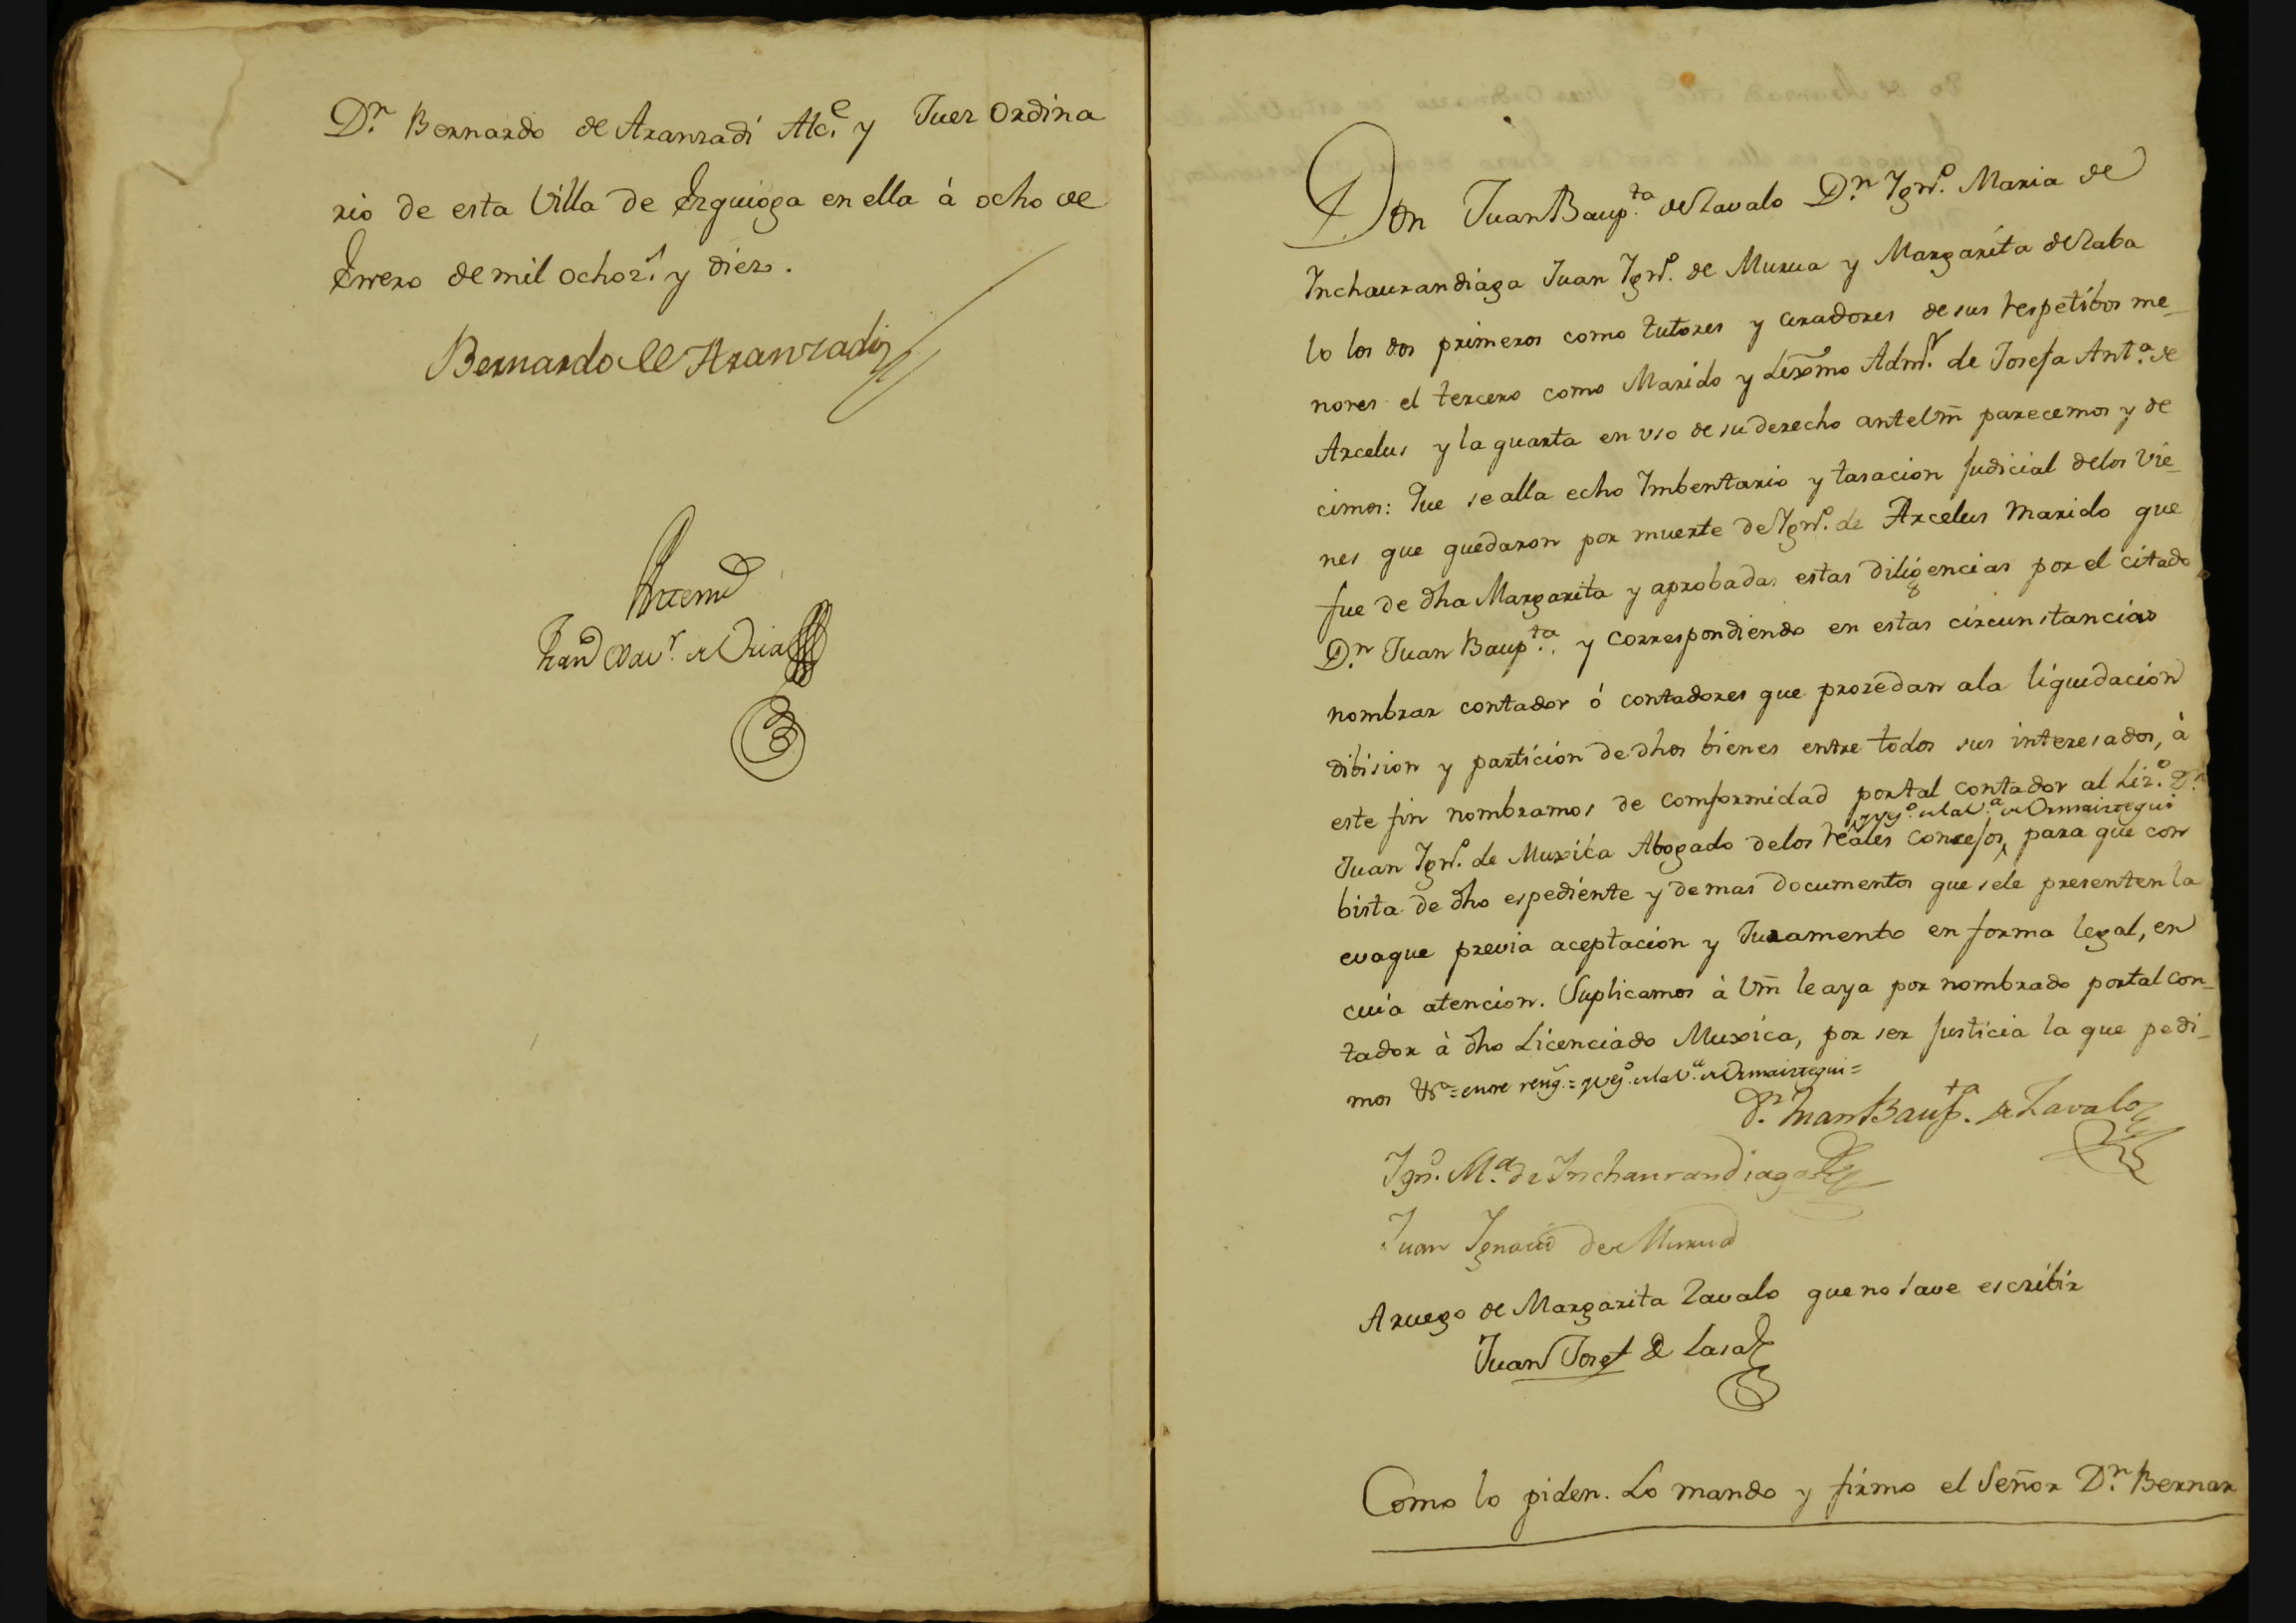 D.n Bernardo de Aranzadi Alc.e y Juez Ordina
rio de esta Villa de Ezquioga en ella à ocho de
Enero de mil ochoz.s y diez.
Bernardo de Aranzadi
Antemi
Fran.co Xav.r de Oria
Don Juan Baup.ta de Zavalo D.n Ign.o Maria de
Inchaurandiaga Juan Ign.o de Murua y Margarita de Zaba
lo los dos primeros como tutores y curadores de sus respetibos me_
nores el tercero como Marido y Lexmo Adm.r de Josefa Ant.a de
Arcelus y la quarta en uso de su derecho ante Vm parecemos y de
cimos: Que se alla echo Imbentario y tasacion Judicial delos vie_
nes que quedaron por muerte de Ign.o de Arcelus Marido que
fue de dha Margarita y aprobadas estas diligencias por el citado
D.n Juan Baup.ta y correspondiendo en estas circunstancias
nombrar contador ó contadores que prozedan ala liquidacion
dibision y particion de dhos bienes entre todos sus interesados, à
este fin nombramos de comformidad por tal contador al Liz.o D.n
vez.o de la V.a de Ormaiztegui
Juan Ign.o de Muxica Abogado delos reales consejos, para que con
bista de dho espediente y demas documentos que sele presenten la
evaque previa aceptacion y Juramento en forma legal, en
cuia atencion. Suplicamos à Vm le aya por nombrado por tal con_
tador à dho Licenciado Muxica, por ser Justicia la que pedi_
mos &.a = entre reng.s = vez.o de la V.a de Ormaiztegui =
D.n Juan Baup.ta de Zavalo
Ign.o M.a de Inchaurandiaga
Juan Ignacio de Murua
A ruego de Margarita Zavalo que no save escribir
Juan Josef de Lasa
Como lo piden. Lo mando y firmo el Señor D.n Bernar